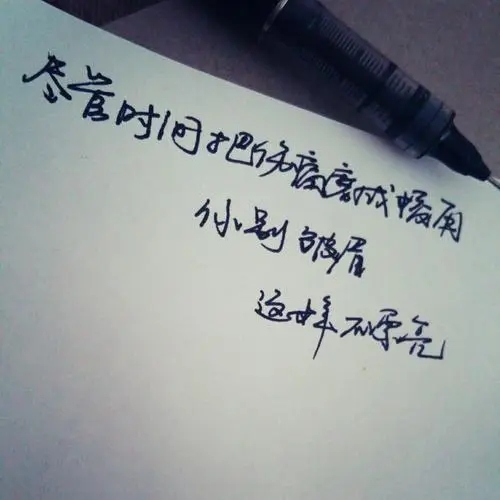 尽管时间把伤痛磨成帷幕
你别皱眉
这样不漂亮